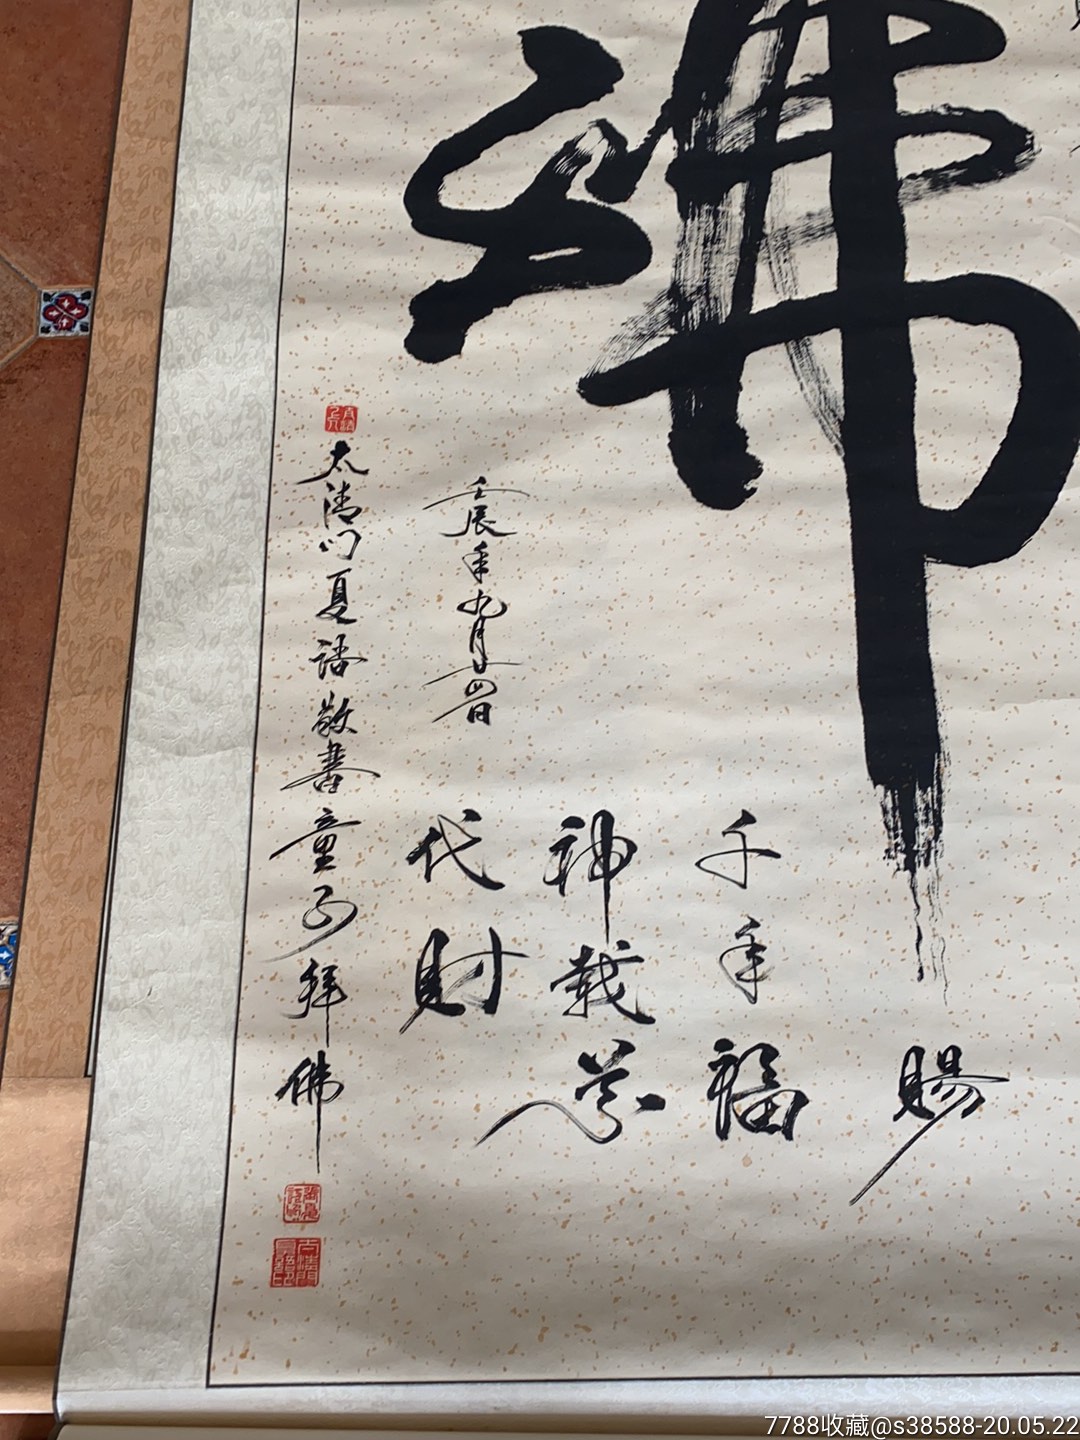 佛
賜
千年福
神載萬
代財
壬辰年九月十四日
太清门夏敬書童子拜佛
7788收藏@s38588-20.05.22